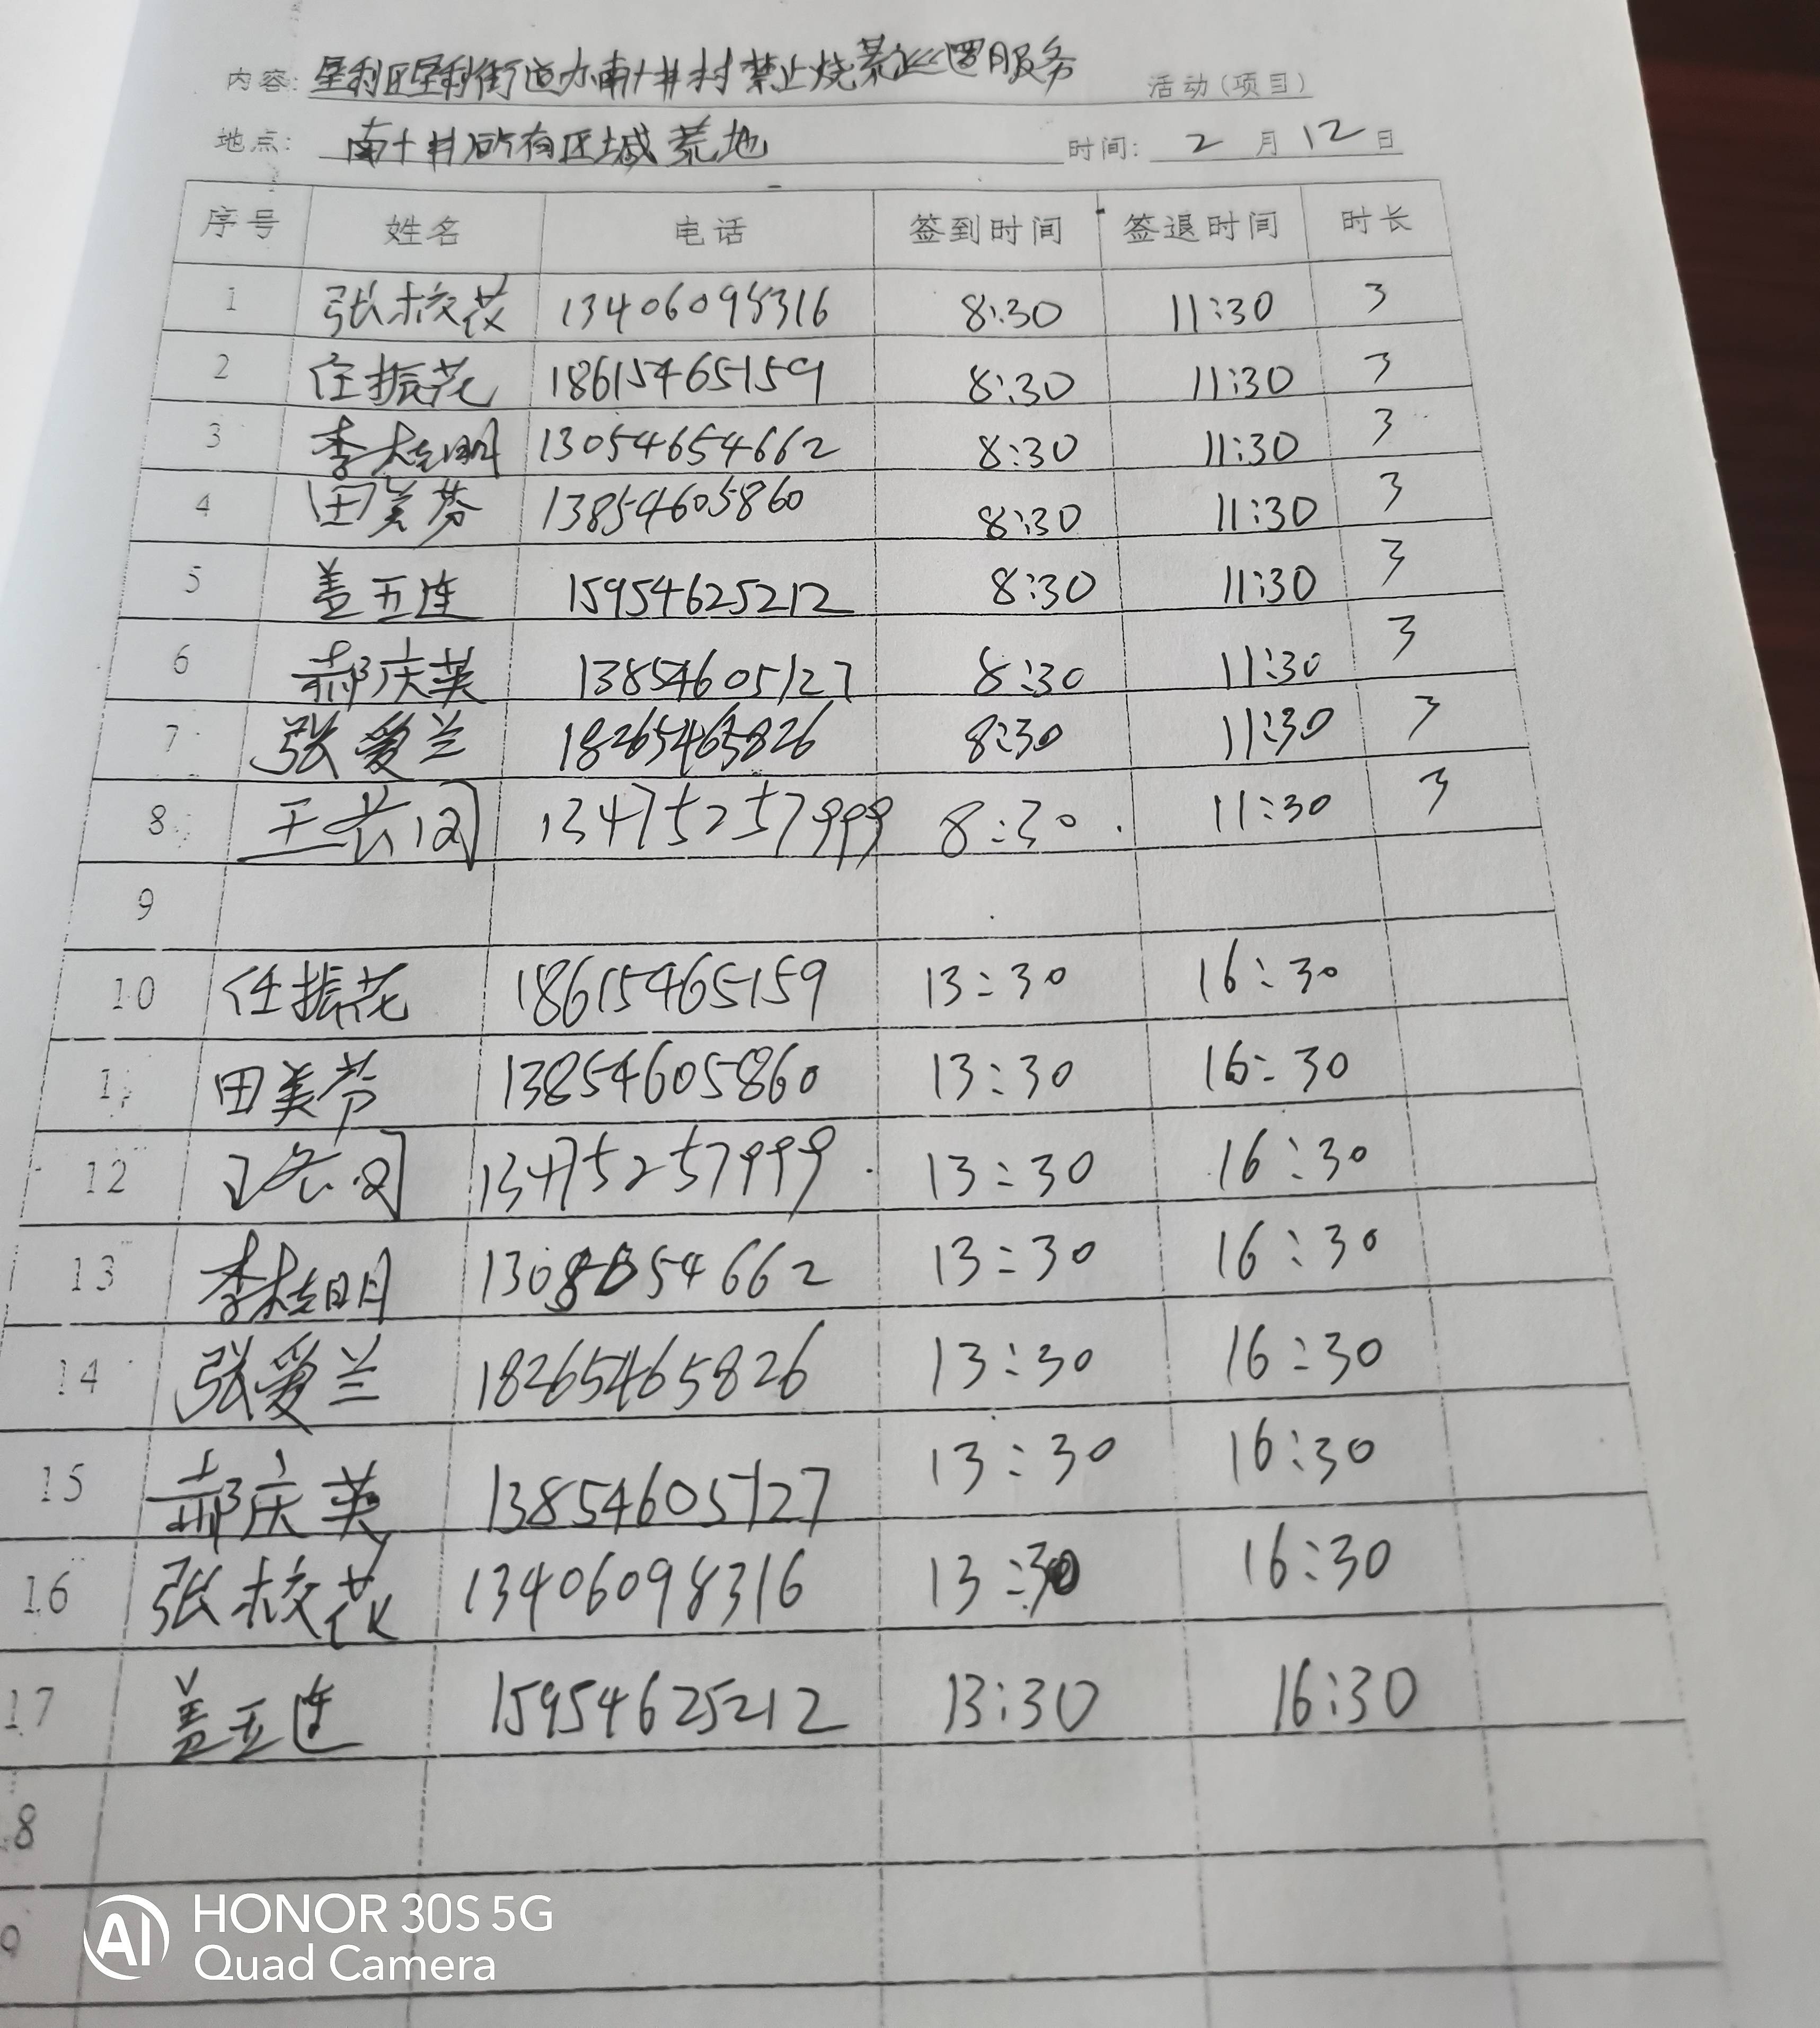 内容: 垦利区垦利街道办南十井村禁止烧荒巡逻服务 活动(项目)
地点: 南十井所有区域荒地 时间: 2 月 12 日
序号 姓名 电话 签到时间 签退时间 时长
1 张校花 13406098316 8:30 11:30 3
2 任振花 18615465159 8:30 11:30 3
3 李桂明 13054654662 8:30 11:30 3
4 田美芬 13854605860 8:30 11:30 3
5 盖玉连 15954625212 8:30 11:30 3
6 郝庆英 13854605127 8:30 11:30 3
7 张爱兰 18265465826 8:30 11:30 3
8 13475257999 8:30 11:30 3
9
10 任振花 18615465159 13:30 16:30
11 田美芳 13854605860 13:30 16:30
12 13475257999 13:30 16:30
13 李桂明 13:30 16:30
14 张爱兰 18265465826 13:30 16:30
15 郝庆英 13854605127 13:30 16:30
16 张校花 13406098316 13:30 16:30
17 盖玉连 15954625212 13:30 16:30
8
9
HONOR 30S 5G
Quad Camera